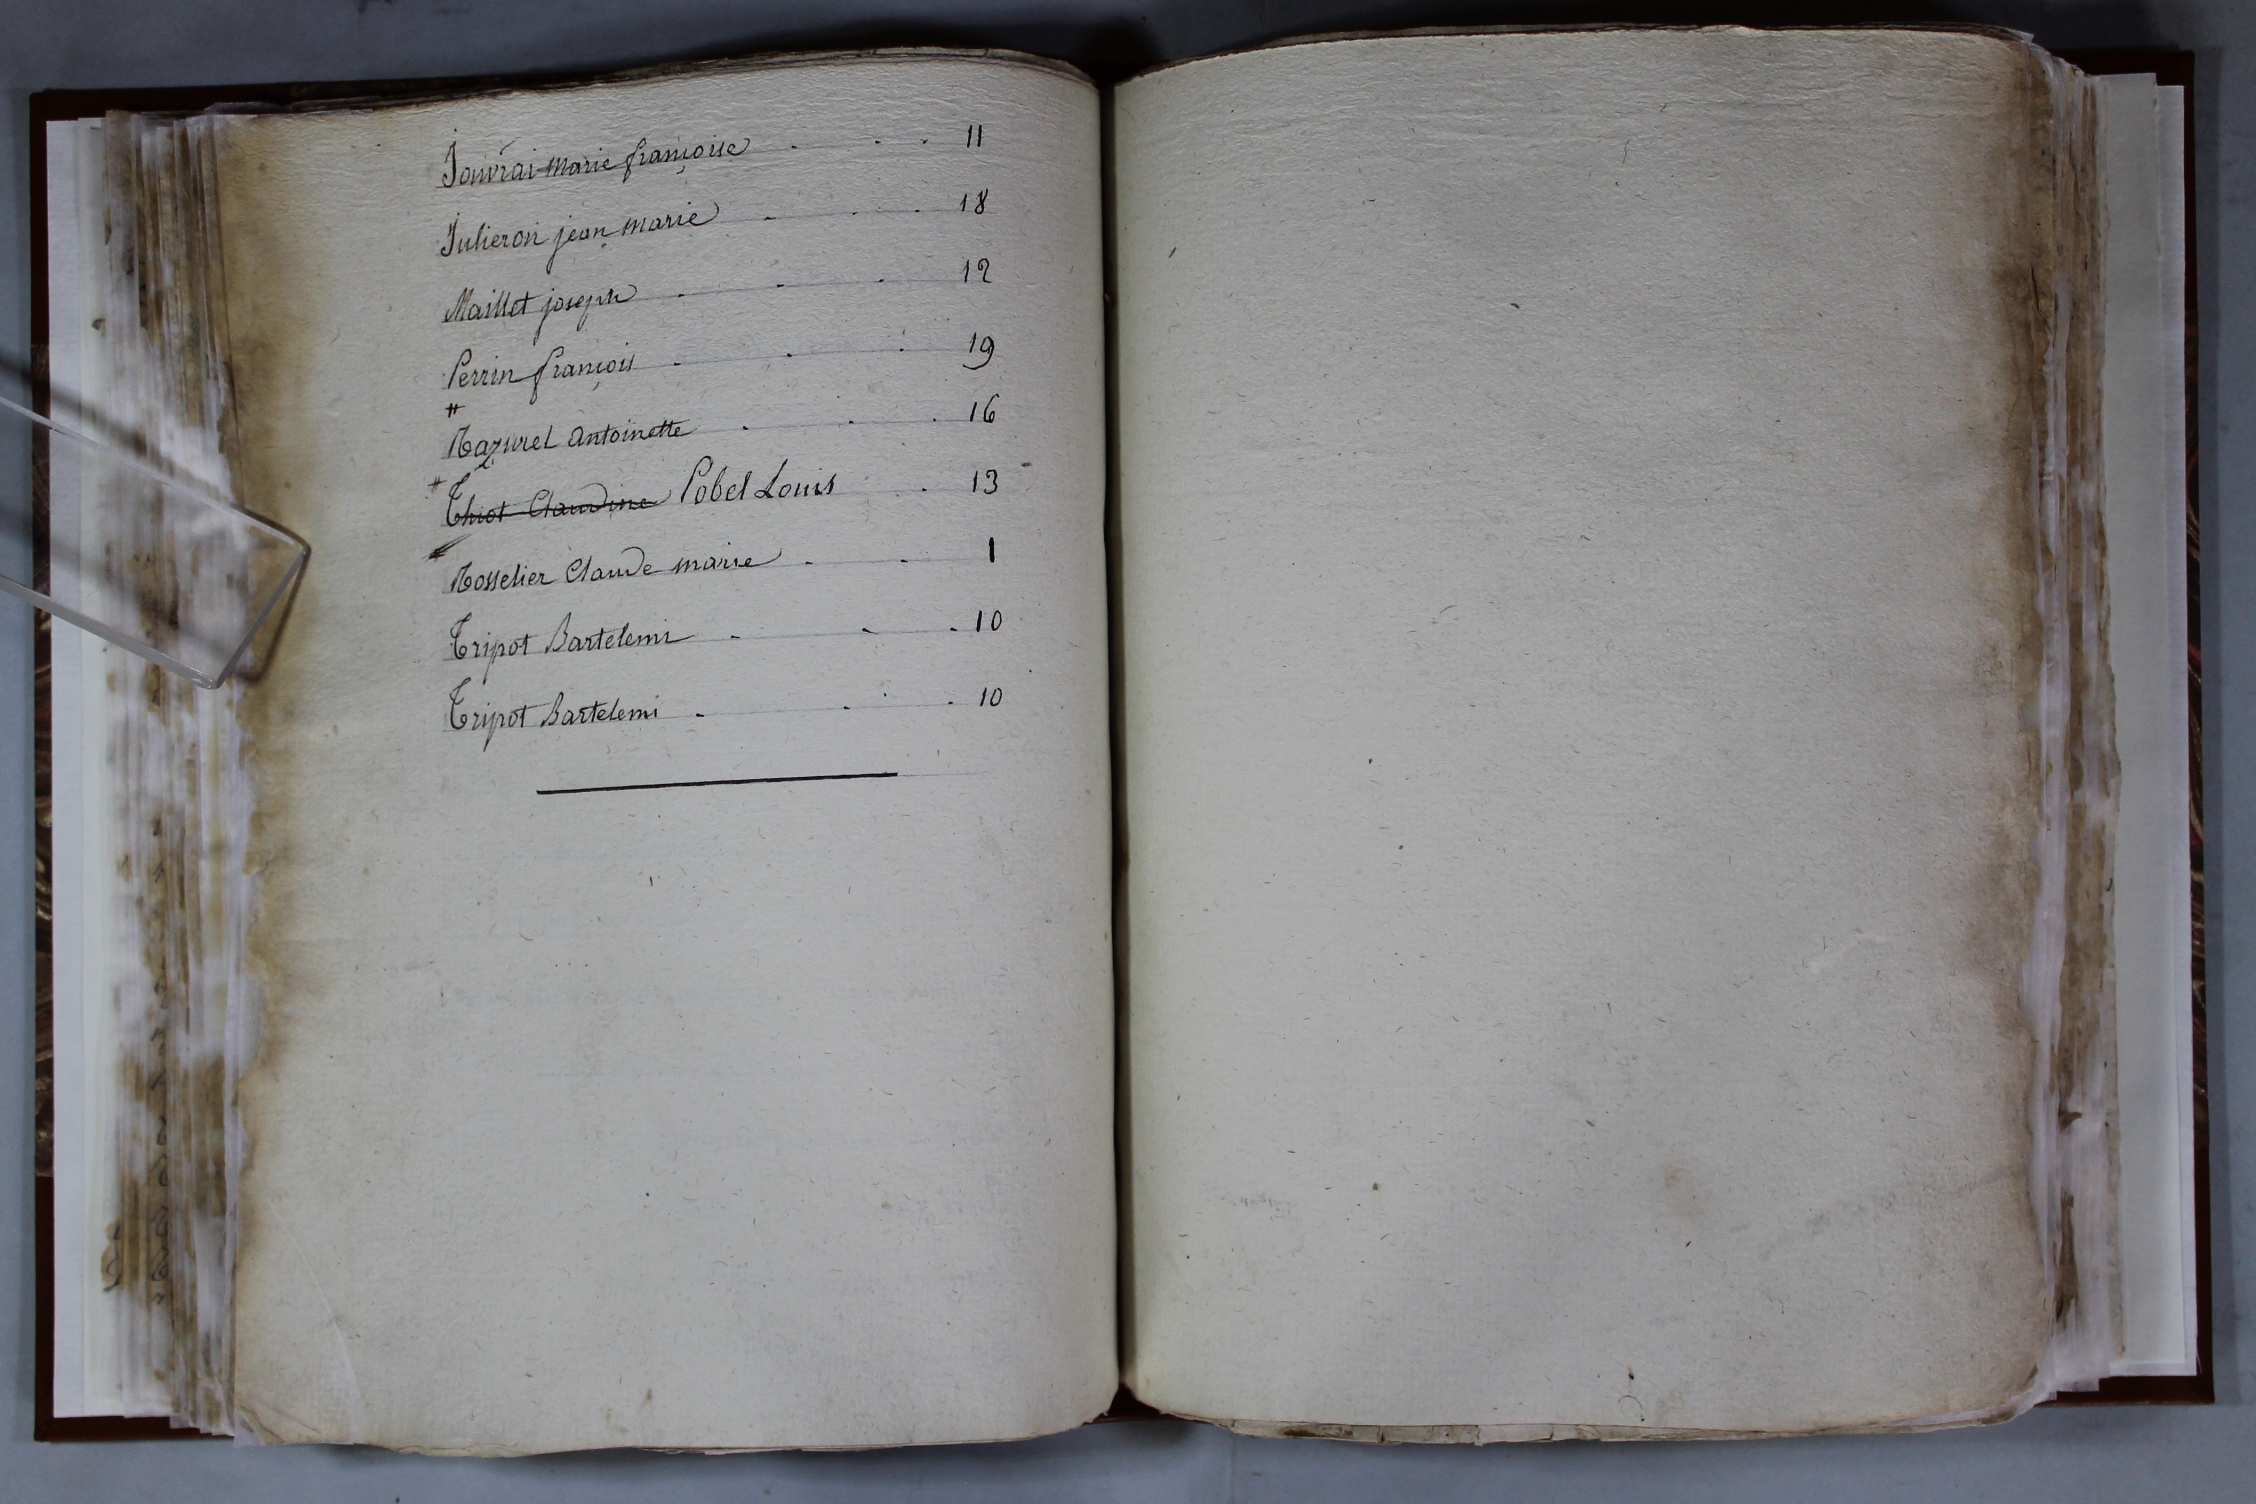 Jouvrai marie françoise . . . 11
Julieron jean marie . . . 18
Maillet joseph . . . 12
Perrin françois . . . 19
Razurel Antoinette . . . 16
Thiot Claudine Pobel Louis . 13
Rosselier Claude marie . . 1
Tripot Bartelemi . . . 10
Tripot Bartelemi . . . 10